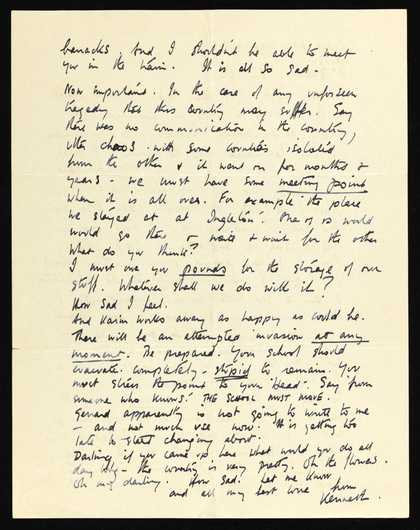 barracks. And I shouldn't be able to meet
you in the train. It is all so sad.
Now important. In the case of any unforseen
tragedy that this country may suffer. Say
there was no communication in the country,
utter chaos. with some counties isolated
from the other & it went on for months &
years - we must have some meeting point
when it is all over. For example the place
we stayed at at Ingleton. One of us would
would go there & wait & wait for the other
What do you think?
I must owe you pounds for the storage of our
stuff. Whatever shall we do with it?
How sad I feel.
And Karin works away as happy as could be.
There will be an attempted invasion at any
moment. Be prepared. Your school should
evacuate. completely - stupid to remain. You
must stress the point to your 'head'. Say from
someone who knows. THE SCHOOL MUST MOVE.
Gerard apparently is not going to write to me
- and not much use now. It is getting too
late to start changing about.
Darling if you came up here what would you do all
day long - the country is very pretty. Oh the flowers.
Oh my darling. How sad. Let me know
and all my best love from
Kenneth.